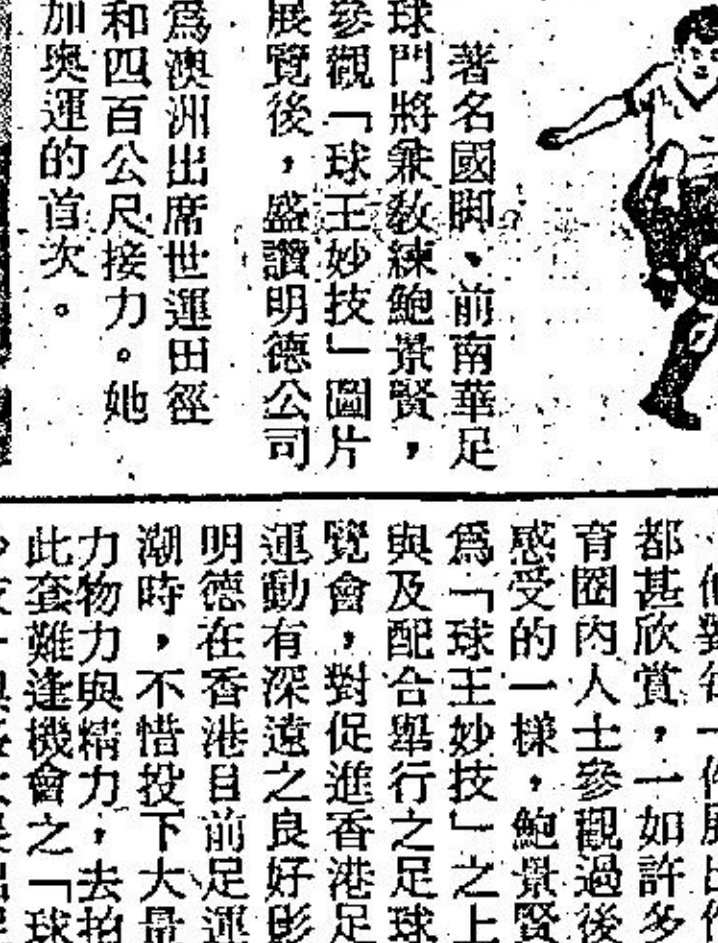 著名國脚、前南華足
球門將兼敎練鮑景賢，
參觀「球王妙技」圖片
展覽後，盛讚明德公司
爲澳洲出席世運田徑
和四百公尺接力。她
加奥運的首次。
都甚欣賞，一如許多
育圈内人士參觀過後
感受的一樣，鮑景賢
爲「球王妙技」之上
與及配合舉行之足球
覽會，對促進香港足
運動有深遠之良好影
明德在香港目前足運
潮時，不惜投下大量
力物力與精力，去拍
此套難逢機會之「球